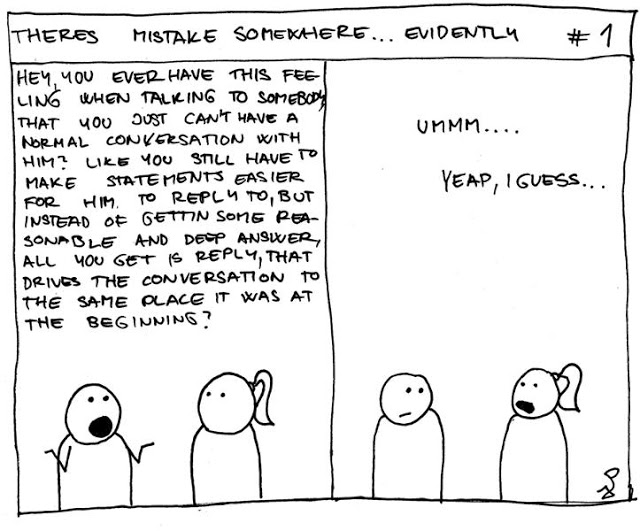 THERES MISTAKE SOMEWHERE... EVIDENTLY #1
HEY, YOU EVER HAVE THIS FEE-
LING WHEN TALKING TO SOMEBODY,
THAT YOU JUST CAN'T HAVE A
NORMAL CONVERSATION WITH
HIM? LIKE YOU STILL HAVE TO
MAKE STATEMENTS EASIER
FOR HIM TO REPLY TO, BUT
INSTEAD OF GETTIN SOME REA-
SONABLE AND DEEP ANSWER,
ALL YOU GET IS REPLY, THAT
DRIVES THE CONVERSATION TO
THE SAME PLACE IT WAS AT
THE BEGINNING?
UMMM....
YEAP, I GUESS...